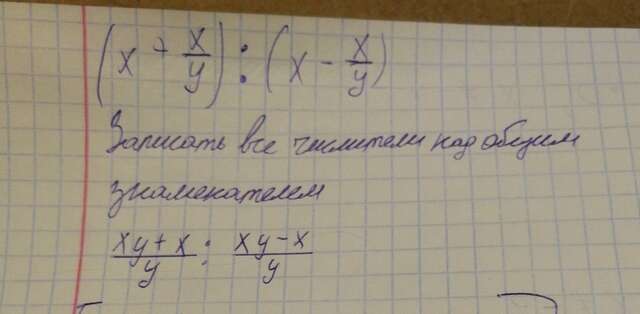 (x + x/y) : (x - x/y)
Записать все числители над общим
знаменателем
xy+x/y : xy-x/y